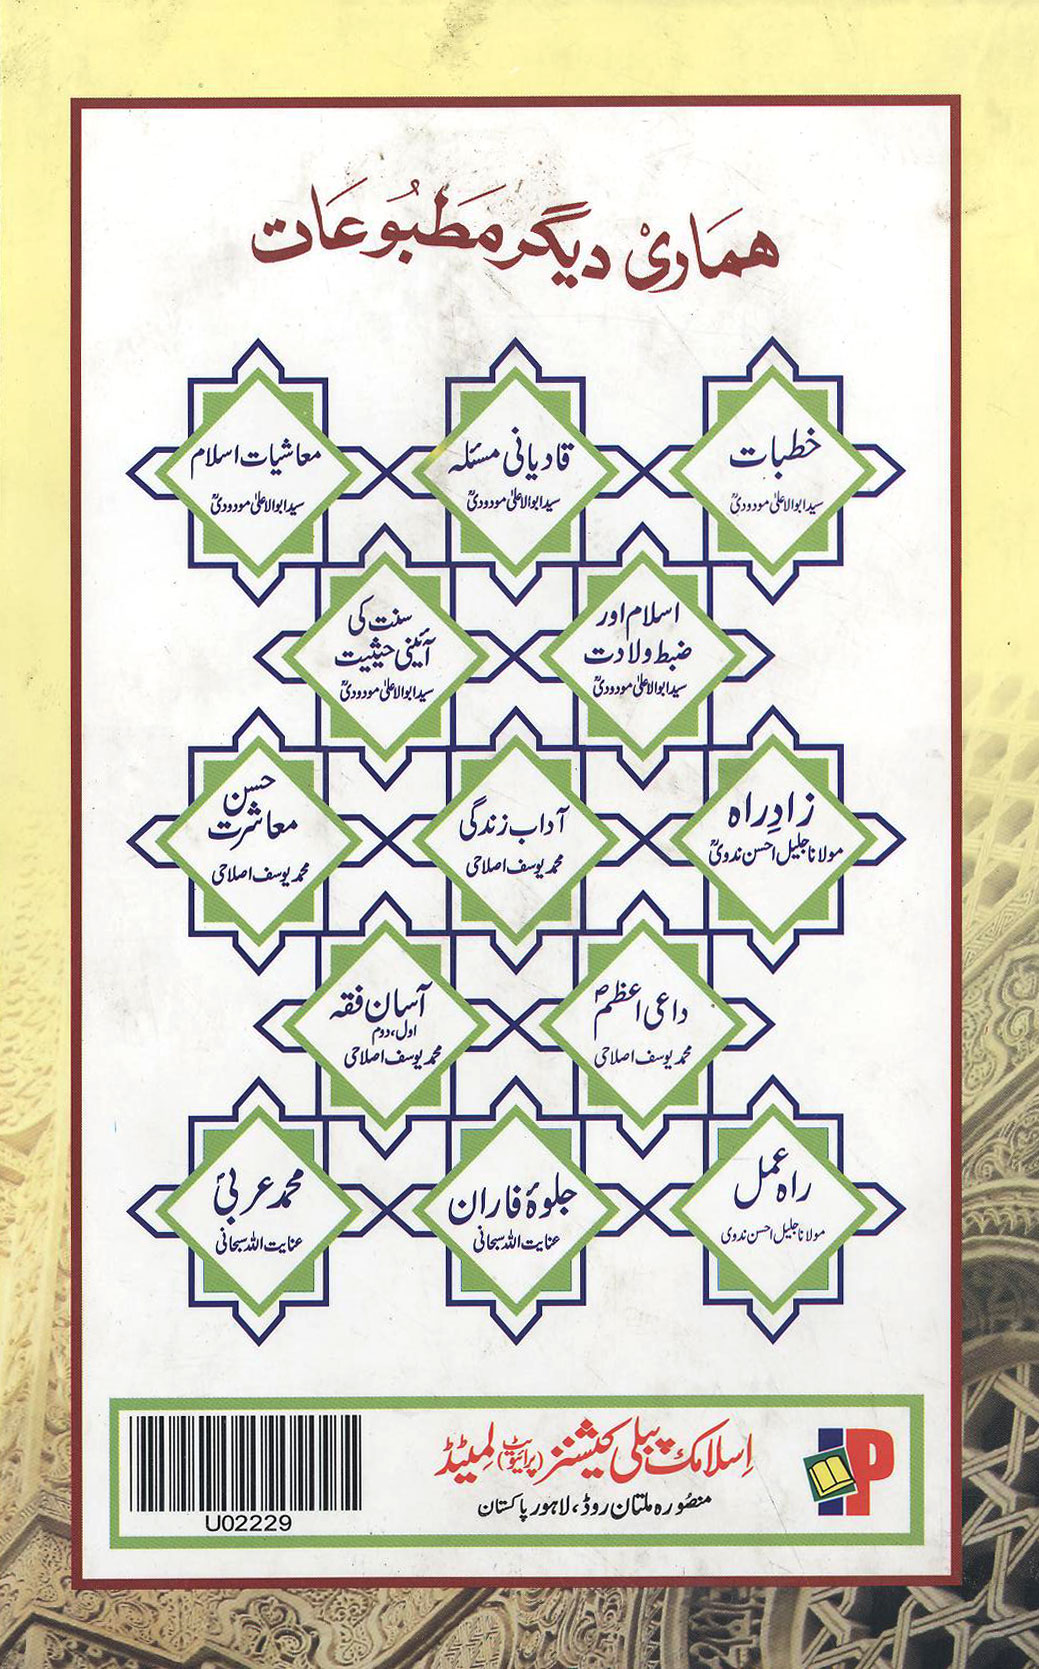 ہماری دیگر مطبوعات
خطبات
سید ابوالاعلیٰ مودودیؒ
قادیانی مسئلہ
سید ابوالاعلیٰ مودودیؒ
معاشیات اسلام
سید ابوالاعلیٰ مودودیؒ
اسلام اور
ضبط ولادت
سید ابوالاعلیٰ مودودیؒ
سنت کی
آئینی حیثیت
سید ابوالاعلیٰ مودودیؒ
زادِ راہ
مولانا جلیل احسن ندویؒ
آداب زندگی
محمد یوسف اصلاحی
حسن
معاشرت
محمد یوسف اصلاحی
داعی اعظمؐ
محمد یوسف اصلاحی
آسان فقہ
اول، دوم
محمد یوسف اصلاحی
راہ عمل
مولانا جلیل احسن ندوی
جلوۂ فاران
عنایت اللہ سبحانی
محمد عربیؐ
عنایت اللہ سبحانی
اسلامک پبلی کیشنز (پرائیویٹ) لمیٹڈ
منصورہ ملتان روڈ، لاہور پاکستان
IP
U02229